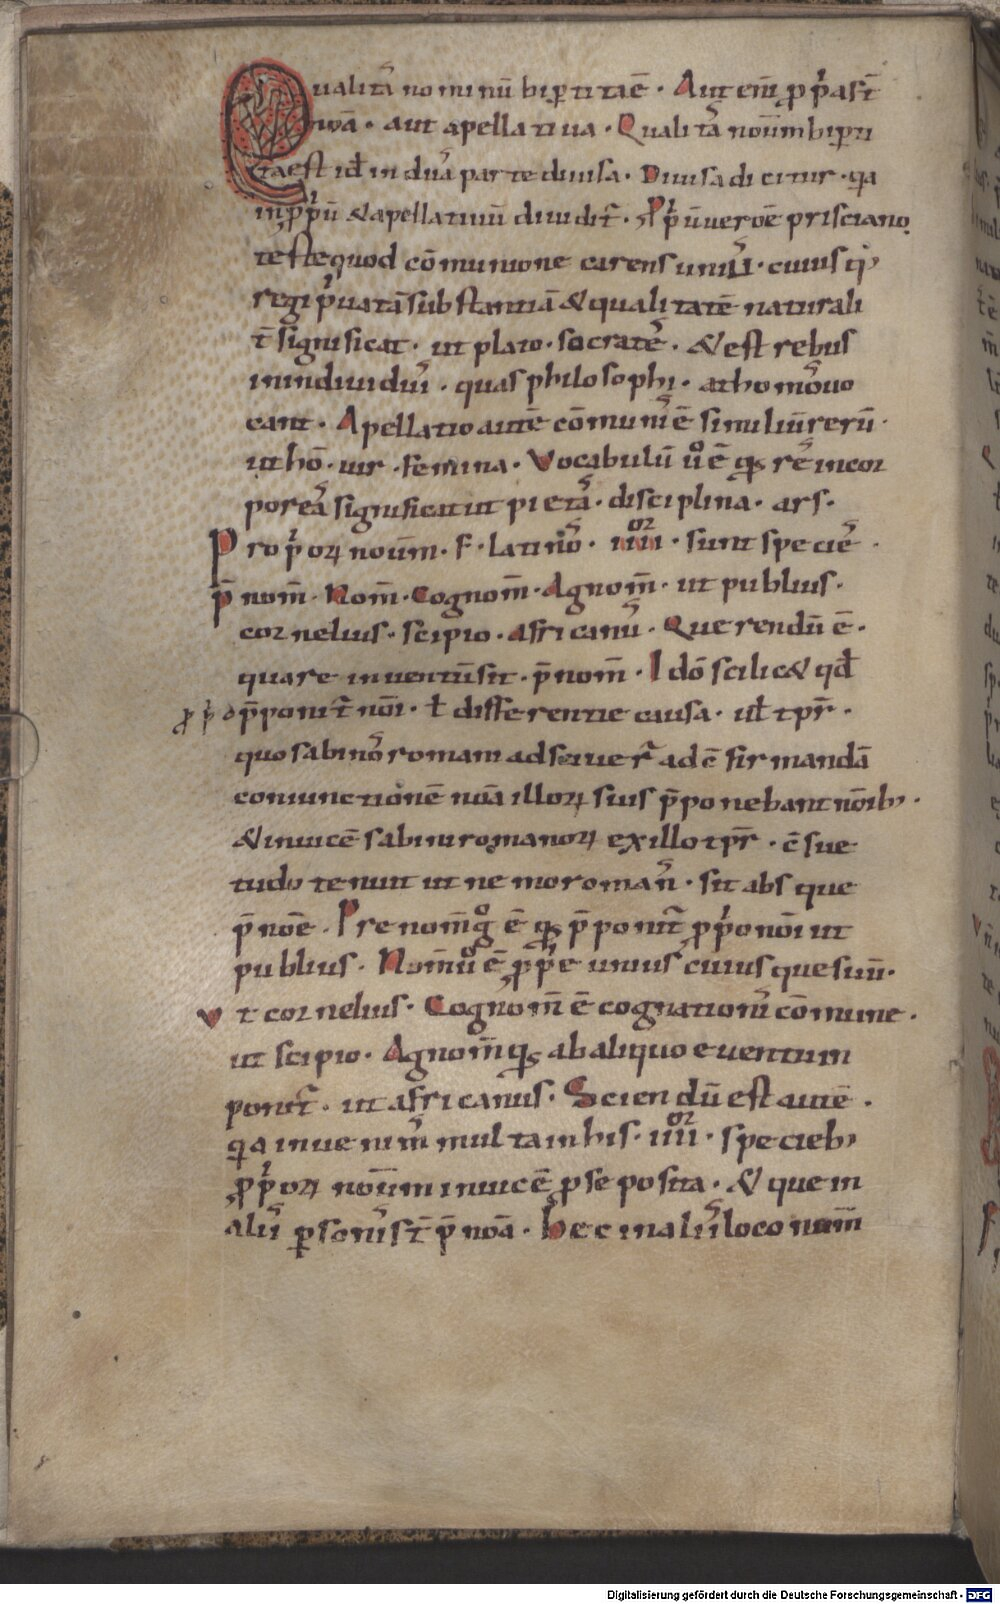 Qualitaᷤ nominū biꝑtitaē· Aut enī ꝓpͥa s̄t
noīa· aut apellatiua· Qualitaᷤ noīum biꝑti
ta est id̄ in duaᷤ parte diuisa· Diuisa dicitur· q̇a
in ꝓpͥū & apellatiuū diuidit᷑· Ꝓpͥū uero ē prisciano
teste quod cōmunione carens uniuᷤ· cuiusq᷒
regi pͥuatā substantiā & qualitatē naturali
t̄ significat· ut plato· socrateᷤ· & est rebus
inindiuiduiᷤ· quas philosophi· athomoᷤ uo
cant· Apellatio autē cōmuniᷤ ē similiū rerū·
ut hō· uir· femina· Vocabulū ůo ē qᷤ reᷤ incor
poreaᷤ significat ut pietaᷤ· disciplina· ars·
Propͥoꝝ noīum· F· latinoᷤ· iiiiᵒʳ· sunt specieᷤ·
p̄nom̄· Nom̄· Cognom̄· Agnom̄· ut publius·
cornelius· scipio· africanuᷤ· Querendū ē·
quare inuentū sit· p̄nom̄· Idō scilic& qd̄
ꝓpͥo p̄ponit᷑ nōi· ł differentie causa· uł tꝑr̄·
quo sabinoᷤ romam adsciuer᷑ ad cfirmandā
coniunctionē noīa illoꝝ suis p̄ponebant nōib᷒·
& inuicē sabini romanoꝝ ex illo tꝑr̄· c̄sue
tudo tenuit ut nemo romanᷤ· sit absque
p̄noē· Prenom̄ g̊ ē qᷤ p̄ponit᷑ ꝓpͥo nōi ut
publius· Nom̄ ůo ē ꝓpͥe unius cuiusque suū·
Vt cornelius· Cognom̄ ē cognationiᷤ cōmune·
ut scipio· Agnom̄ qᷤ ab aliquo euentum
ponit᷑· ut africanus· Sciendū est autē·
q̇a inuenimᷤ multa in his· iiiiᵒʳ· specieb᷒
ꝓpͥoꝝ noīum inuicē ꝓ se posita· & que in
aliiᷤ ꝑsoniᷤ s̄t p̄noīa· hec in aliiᷤ loco nom̄
Digitalisierung gefördert durch die Deutsche Forschungsgemeinschaft - DFG